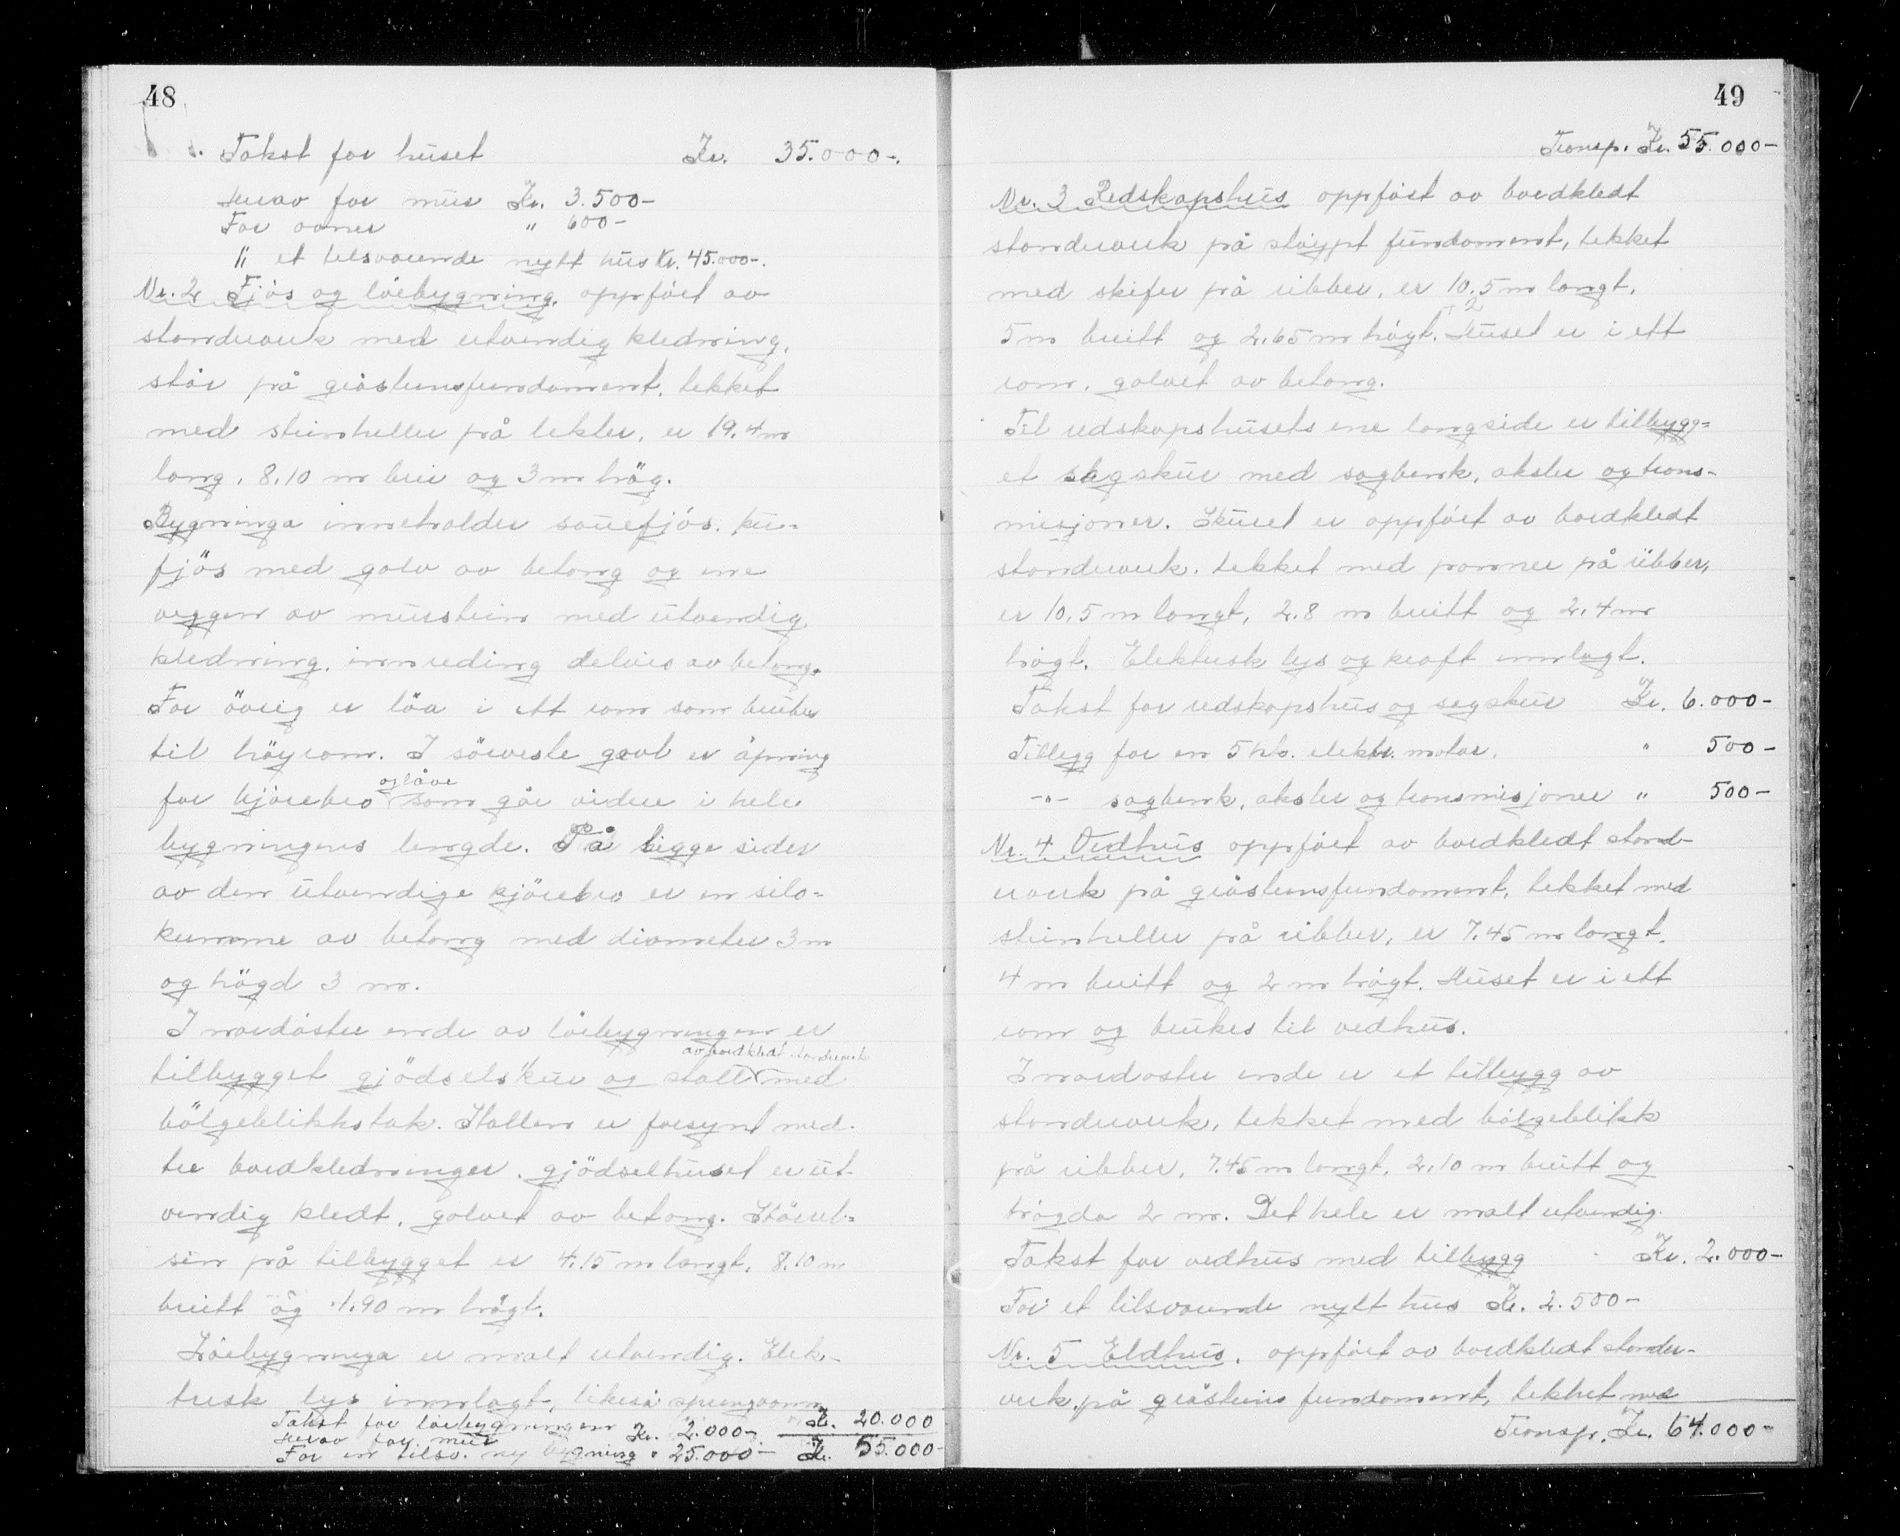 48
Takst for huset Kr. 35.000-.
Herav for mur Kr. 3.500-
For ovner " 600-
" et tilsvarende nytt hus Kr. 45.000-.
Nr. 2 Fjös og löebygning, oppfört av
stenderverk med utvendig kledning,
står på gråsteinsfundament, tekket
med steinheller på lekter, er 19.4 m
lang, 8,10 m brei og 3 m hög.
Bygninga inneholder sauefjös, ku-
fjös med golv av betong og ene
veggen av murstein med utvendig
kledning, innreding delvis av betong.
For övrig er löa i ett rom som brukes
til höyrom. I sörvestre gavl er åpning
for kjörebro og låve som går videre i hele
bygningens lengde. På begge sider
av den utvendige kjörebro er en silo-
kumme av betong med diameter 3 m
og högd 3 m.
I nordöstre ende av löebygningen er
tilbygget gjödselskur og stall av bordkledt stenderverk med
bölgeblikkstak. Stallen er forsynt med
tre bordkledninger, gjödselhuset er ut-
vendig kledt, golvet av betong. Störrel-
sen på tilbygget er 4,15 m langt, 8,10 m
breitt og 4,90 m högt.
Löebygninga er malt utvendig. Elek-
trisk lys innlagt, likeså springvann
Takst for löebygningen Kr. 20.000
Herav for mur Kr. 2.000-
For en tilsv. ny bygning " 25.000- Kr. 55.000-
49
Transp. Kr. 55.000-
Nr. 3 Redskapshus oppfört av bordkledt
stenderverk på stöypt fundament, tekket
med skifer på ribber, er 10,5 m langt,
5 m breitt og 2,65 m högt. Huset er i ett
rom, golvet av betong.
Til redskapshusets ene langside er tilbygg-
et sagskur med sagbenk, aksler og trans-
misjoner. Skuret er oppfört av bordkledt
stenderverk, tekket med panner på ribber,
er 10,5 m langt, 2,8 m breitt og 2,4 m
högt. Elektrisk lys og kraft innlagt.
Takst for redskapshus og sagskur Kr. 6.000-
Tillegg for en 5 hk. elektr. motor, " 500-
-"- sagbenk, aksler og transmisjoner " 500-
Nr. 4 Vedhus oppfört av bordkledt stend-
erverk på gråsteinsfundament, tekket med
steinheller på ribber, er 7.45 m langt,
4 m breitt og 2 m högt. Huset er i ett
rom og brukes til vedhus.
I nordöstre ende er et tilbygg av
stenderverk, tekket med bölgeblikk
på ribber, 7.45 m langt, 2,10 m breitt og
högda 2 m. Det hele er malt utvendig.
Takst for vedhus med tilbygg Kr. 2.000-
For et tilsvarende nytt hus Kr. 2.500-
Nr. 5 Eldhus, oppfört av bordkledt stender-
verk på gråsteins fundament, tekket med
Transp. Kr. 64.000-